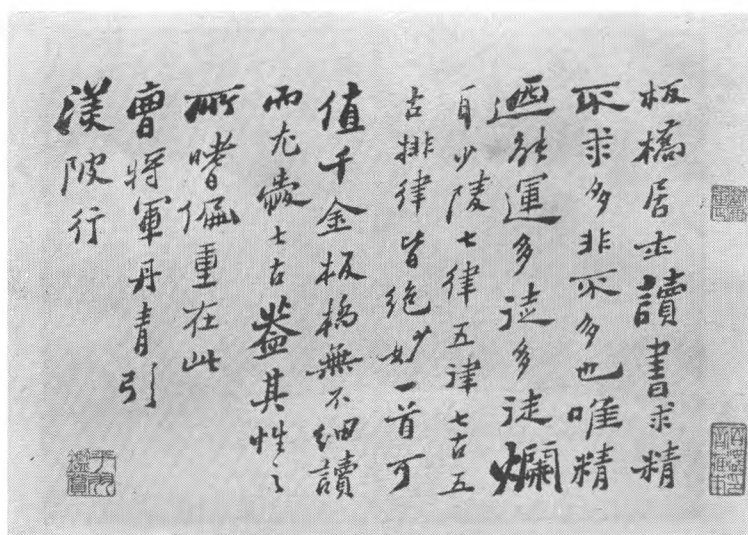 板橋居士讀書求精
不求多非不多也唯精
迺能運多徒多徒爛
耳少陵七律五律七古五
古排律皆絕妙一首可
值千金板橋無不細讀
而尤愛七古葢其性之
所嗜偏重在此
曹將軍丹青引
渼陂行